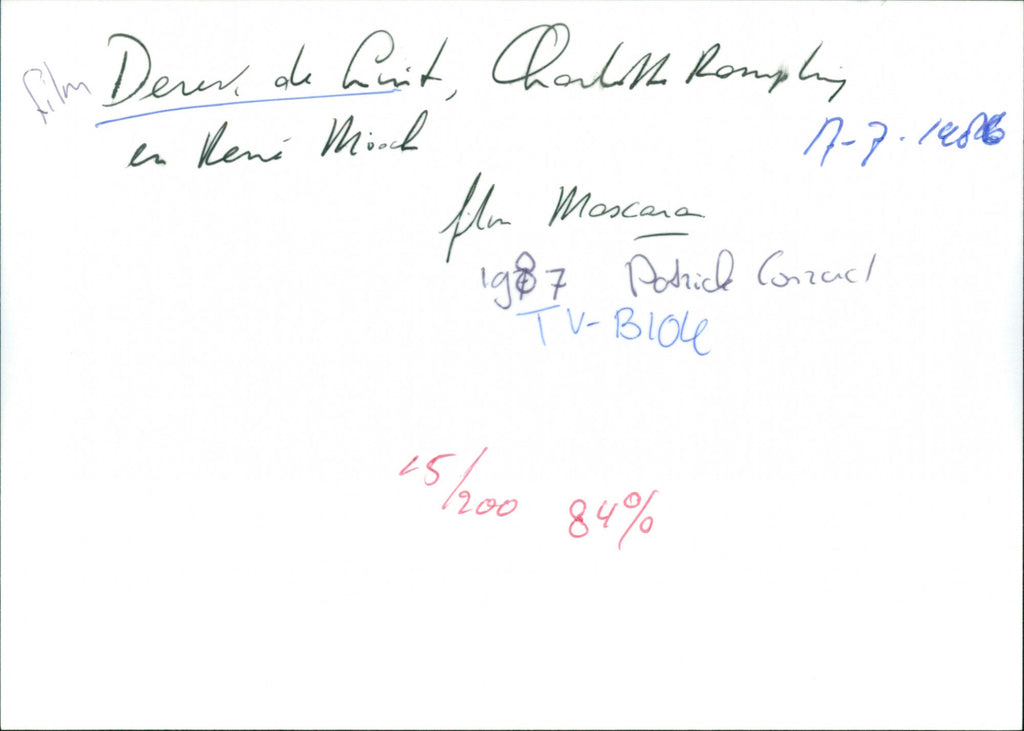 film Derek de Lint, Charlotte Rampling
en René
17-7-1986
film Mascara
1987 Patrick Conrad
TV-Blok
15/200 84%